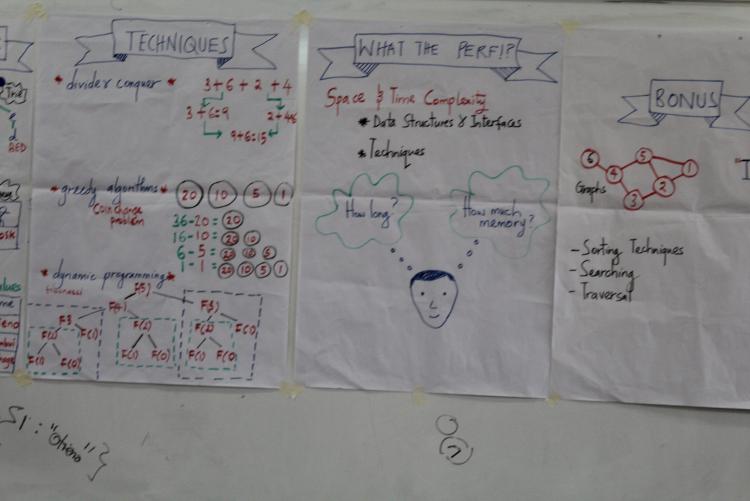 TECHNIQUES
* divide & conquer *
3 + 6 + 2 + 4
3 + 6 = 9
2 + 4 = 6
9 + 6 = 15
* greedy algorithms *
20 10 5 1
Coin change
problem
36 - 20 = 20
16 - 10 = 20 10
6 - 5 = 20 10 5
1 - 1 = 20 10 5 1
* dynamic programming *
fibonacci
F(5)
F(4) F(3)
F3 F(2) F(2) F(1)
F(2) F(1)
F(1) F(0) F(1) F(0) F(1) F(0)
WHAT THE PERF!?
Space & Time Complexity
* Data Structures & Interfaces
* Techniques
How long?
How much
memory?
BONUS
Graphs
6 5 1
4 2
3
- Sorting Techniques
- Searching
- Traversal
Trie
d
RED